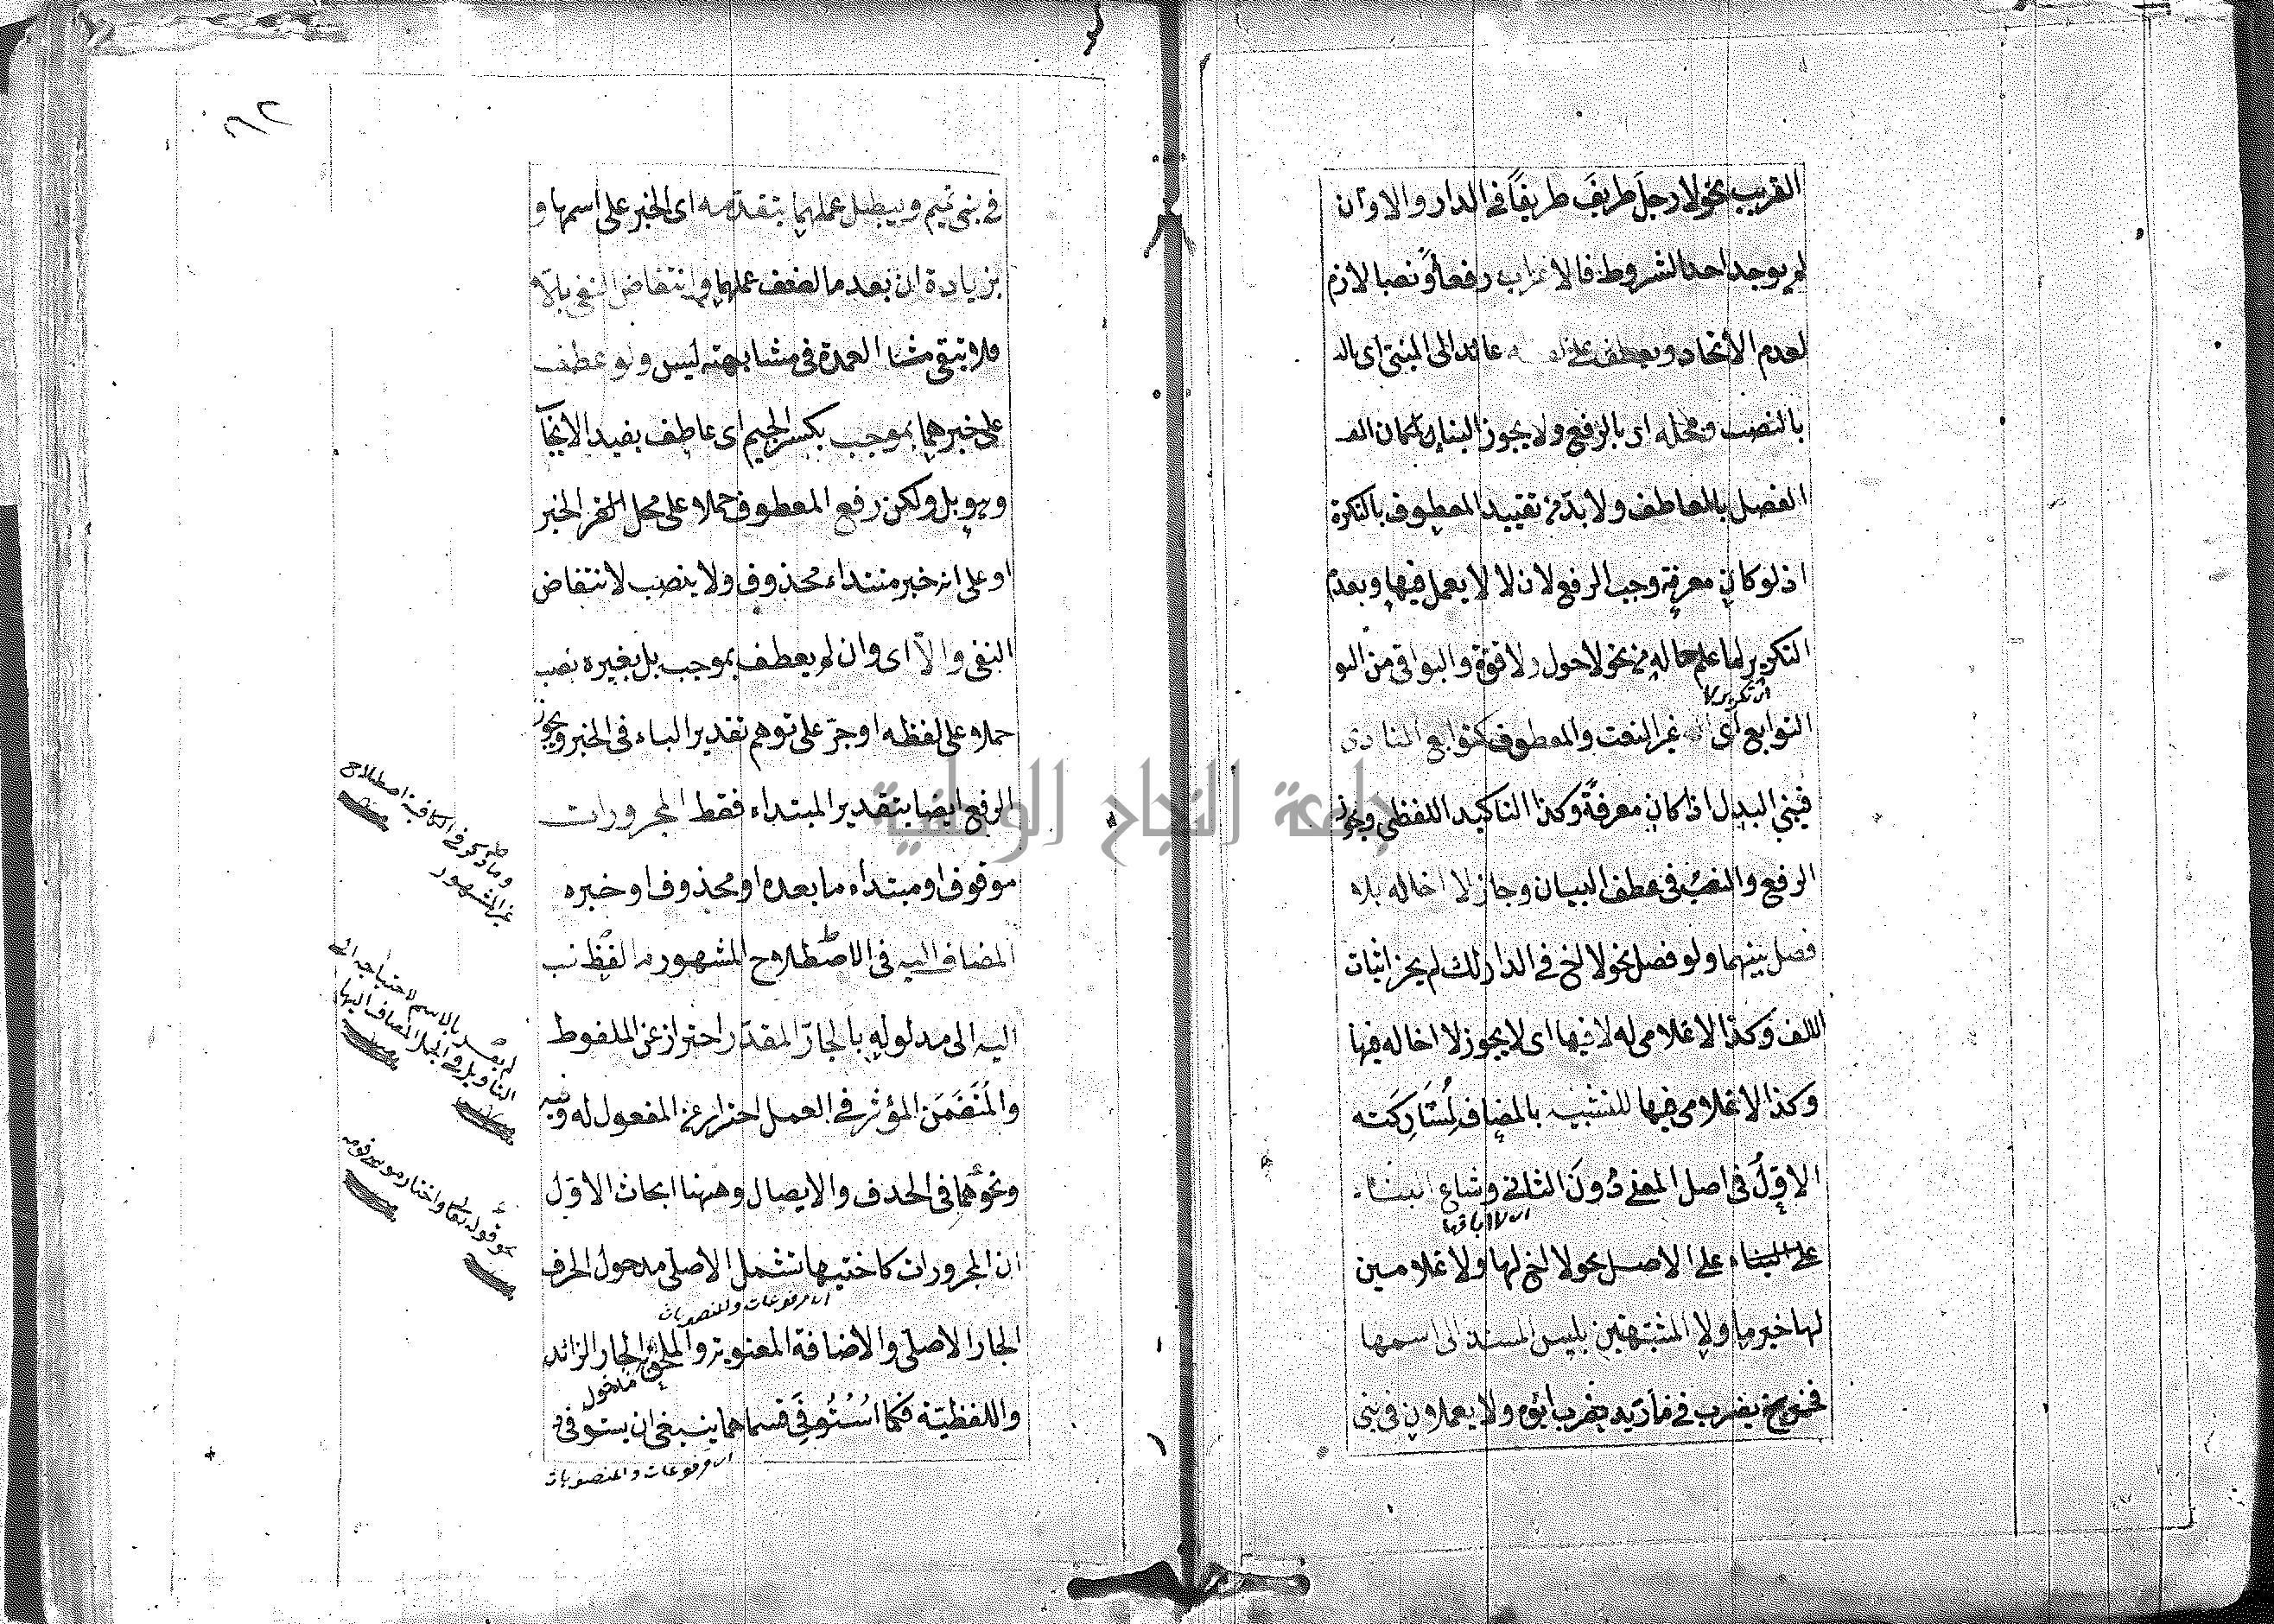 القريب نحو لا رجل ظريف ظريفاً في الدار والا وان
لم يوجد احد الشروط فالاعراب رفعاً ونصبا لازم
لعدم الاتحاد ويعطف على عائد الى المبنى اى
بالنصب ومحله اى بالرفع ولا يجوز البناء لمكان
الفصل بالعاطف ولا بد من تقييد المعطوف بالنكرة
اذ لو كان معرفة وجب الرفع لان لا لا يعمل فيها وبعدم
التكرير لما علم حاله من نحو لا حول ولا قوة والبواقى من
اى تكرير لا
التوابع اى غير النعت والمعطوف كتوابع المنادى
البدل اذا كان معرفةً وكذا التاكيد اللفظى ويجوز
الرفع والنصب فى عطف البيان وجاز لا اخاله بلا
فصل بينهما ولو فصل نحو لا اخ فى الدار لك لم يجز اثبات
الالف وكذا لا غلامى له لا فيها اى لا يجوز لا اخاله فيها
وكذا لا غلامى فيها للتشبيه بالمضاف لمشاركته
الاوّل فى اصل المعنى دون الثانى وشاع البناء
على البناء على الاصل نحو لا اخ لها ولا غلامين
لها خبر ما ولا المشبهتين بليس المسند الى اسمهما
يضرب فى ما زيد يضرب ابوه ولا يعملان فى بنى
٩٢
فى بنى تميم ويبطل عملهما بتقدمه اى الخبر على اسمها و
بزيادة ان بعد ما لضعف عملها وانتقاض النفى بالا
فلا تبقى العمدة فى مشابهته ليس ولو عطف
على خبرهما بموجب بكسر الجيم اى عاطف يفيد الايجاب
وهو بل ولكن رفع المعطوف حملا على محل الخبر
او على انه خبر مبتداء محذوف ولا ينصب لانتقاض
النفى والاّ اى وان لم يعطف بموجب بل بغيره نصب
حملا على لفظه او جرّ على توهم تقدير الباء فى الخبر ويجوز
الرفع ايضا بتقدير المبتداء فقط المجرورات
موقوف او مبتداء ما بعده او محذوف او خبره
المضاف اليه فى الاصطلاح المشهور لفظ نسب
اليه الى مدلوله بالجارّ المقدّر احتراز عن الملفوظ
والمتضمن المؤثر فى العمل احتراز عن المفعول له وفيه
ونحوهما فى الحذف والايصال وههنا ابحاث الاوّل
ان المجرورات كاختيها تشمل الاصلى مدخول الحرف
اى مرفوعات والمنصوبات
الجار الاصلى والاضافة المعنوية والملحق الجار الزائد
مدخول
واللفظية فكما استُوفى قسماهما ينبغى ان يستوفى
اى مرفوعات والمنصوبات
وما وقع فى الكافية اصطلاح
غير المشهور
لم يقيد بالاسم لاحتياجه الى
التأويل فى الجمل المضاف اليها
نحو قوله تعالى واختار موسى قومه
جامعة النجاح الوطنية